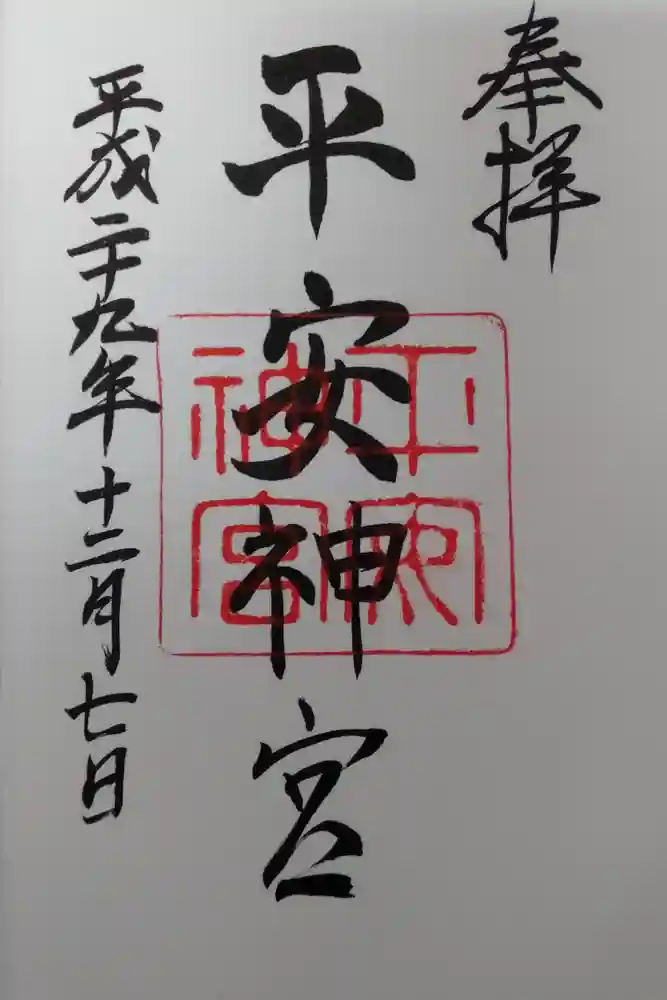 奉拝
平安神宮
平安神宮
平成二十九年十二月七日